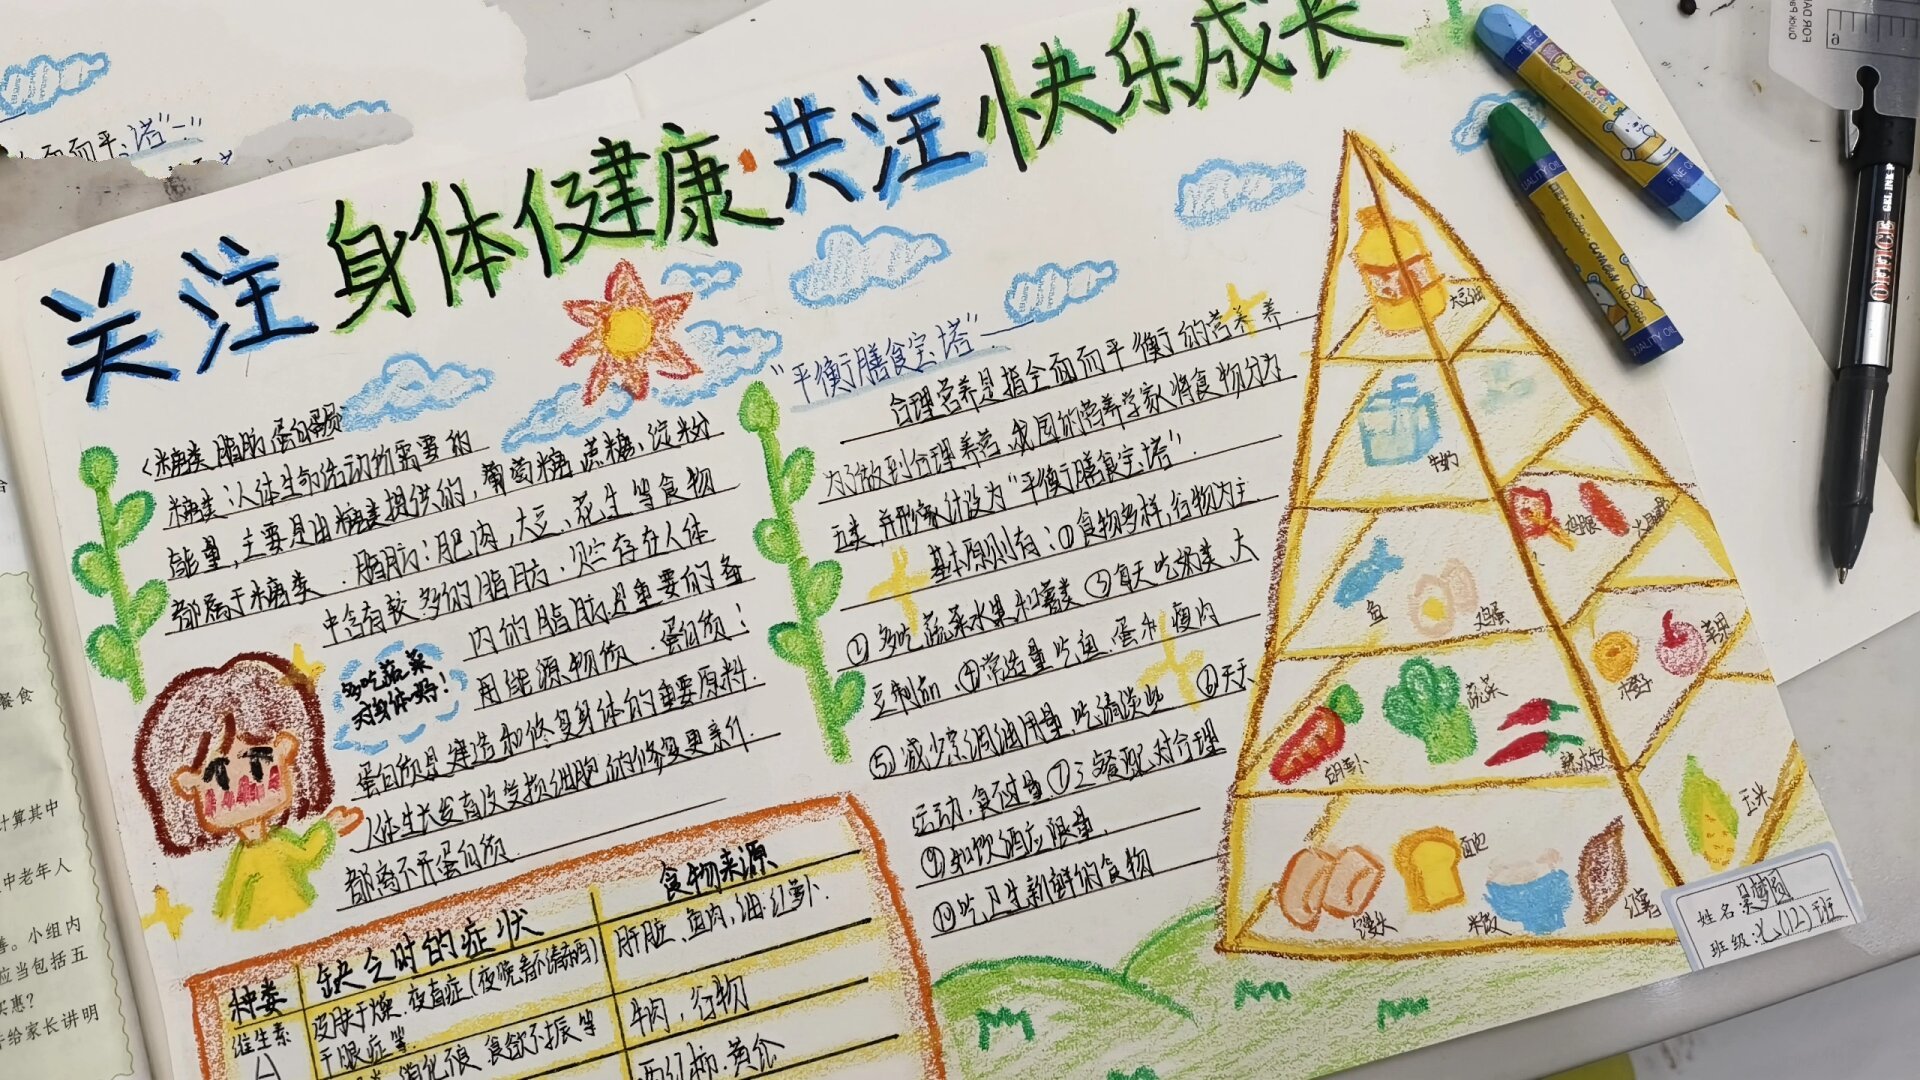 关注身体健康·共注快乐成长
<糖类 脂肪 蛋白质
糖类：人体生命活动所需要的
能量，主要是由糖类提供的，葡萄糖、蔗糖、淀粉
都属于糖类．脂肪：肥肉，大豆、花生等食物
中含有较多的脂肪，贮存在人体
内的脂肪是重要的备
用能源物质．蛋白质：
蛋白质是建造和修复身体的重要原料．
人体生长发育及受损细胞的修复更新
都离不开蛋白质．
多吃蔬菜
对身体好！
种类 缺乏时的症状 食物来源
维生素
A
皮肤干燥．夜盲症（夜晚看不清东西）
干眼症等
肝脏、鱼肉，
消化不良、食欲不振等
牛肉，
"平衡膳食宝塔"—
合理营养是指全面而平衡的营养
为了做到合理养营，我国的营养学家将食物分为
五类，并形象计设为"平衡膳食宝塔"．
基本原则有：①食物多样，谷物为主
②多吃蔬菜水果和薯类 ③每天吃奶类 大
豆制品．④常适量吃鱼、蛋和瘦肉
⑤减少烹调油用量，吃清淡 ⑥天天
运动，食不过量．⑦三餐配对合理
如饮酒应限量．
⑩吃卫生新鲜的食物
大豆油
牛奶
鸡腿
鱼
鸡蛋
蔬菜
胡萝卜
橙子
苹果
玉米
馒头
面包
米饭
红薯
姓名
班级:七(12)班
餐食
计算其中
中老年人
善。小组内
应当包括五
实惠？
给家长讲明
面而平
塔"—"
FINE QUALITY OIL
QUALITY OIL
GEL INK
FOR DA
Quick